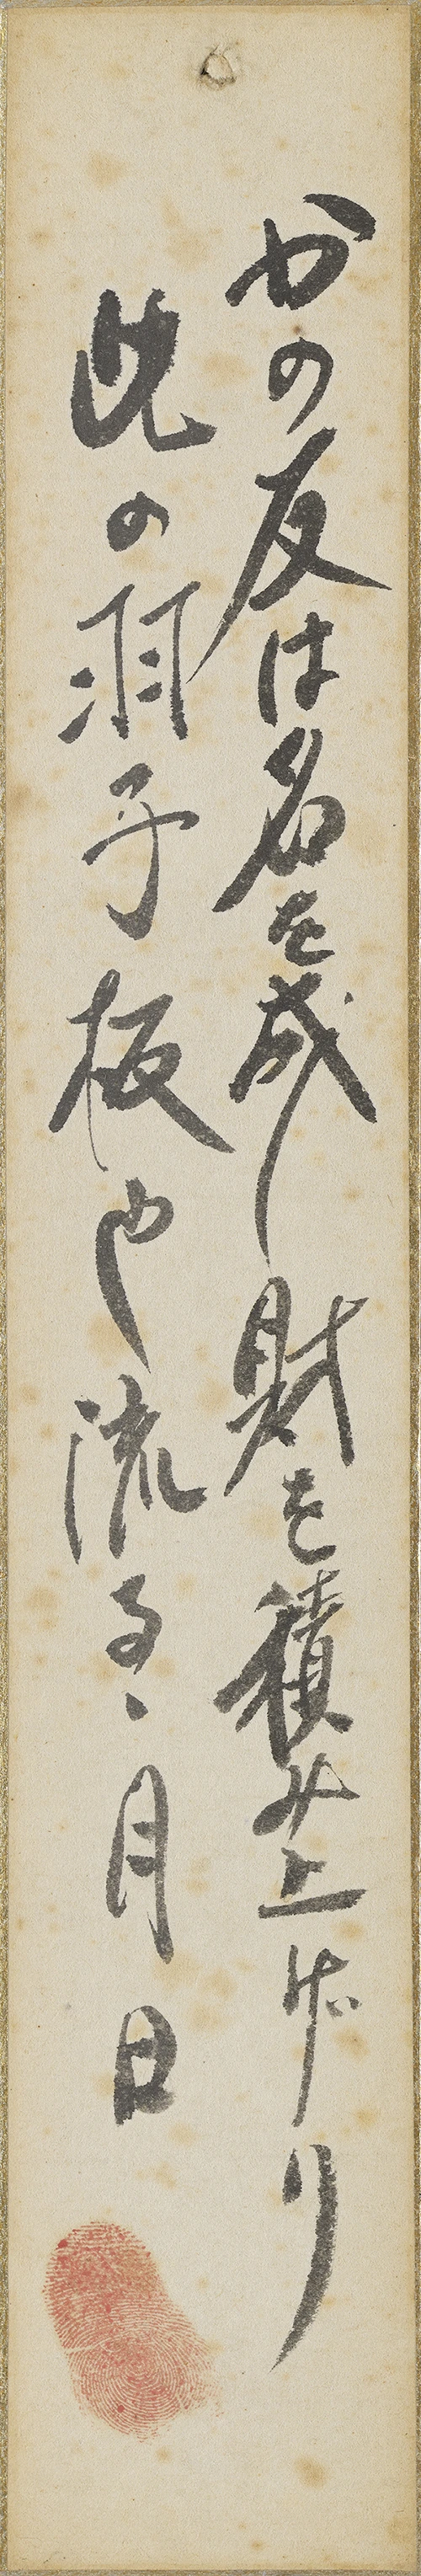 かの友は名を成し財を積み上げり
此の羽子板や流るゝ月日